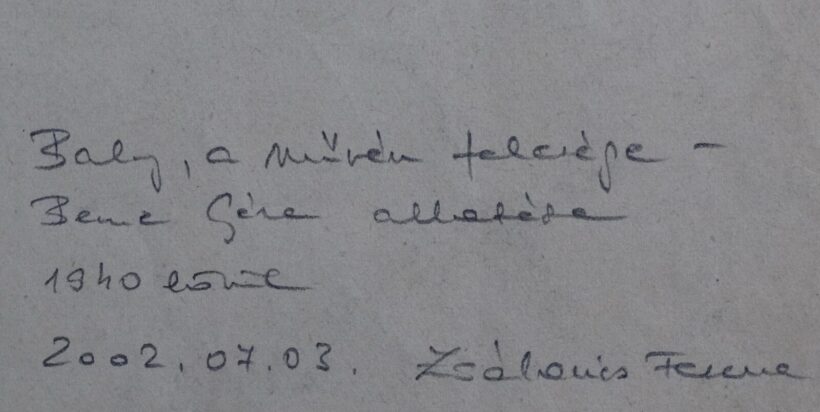 Baly, a művész felesége –
Bene Géza alkotása
1940 körül
2002.07.03. Zsákovics Ferenc